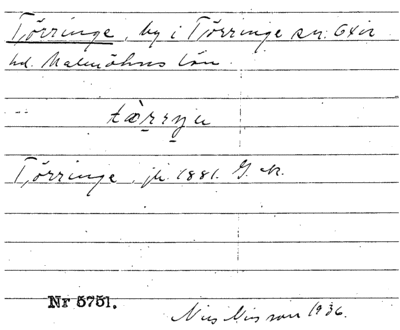 Tjörringe, by i Tjörringe sn. Oxie
hd. Malmöhus län.
Tjörringe, jb. 1881. G. M.
Nr 5751.
Nils Nilsson 1936.